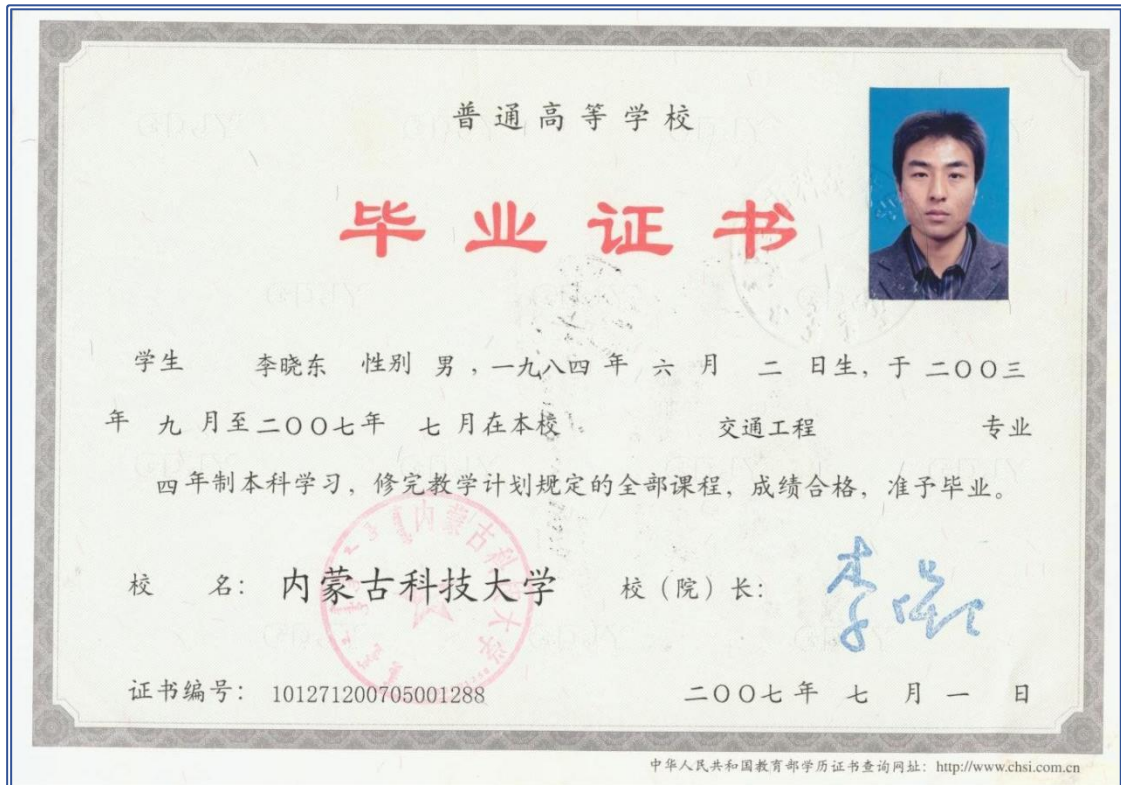 普通高等学校
毕业证书
学生 李晓东 性别 男 ，一九八四 年 六 月 二 日生，于 二〇〇三
年 九 月至 二〇〇七年 七 月在本校 交通工程 专业
四 年制本科学习，修完教学计划规定的全部课程，成绩合格，准予毕业。
校 名： 内蒙古科技大学 校（院）长：
内蒙古科技大学
证书编号： 101271200705001288 二〇〇七 年 七 月 一 日
中华人民共和国教育部学历证书查询网址：http://www.chsi.com.cn